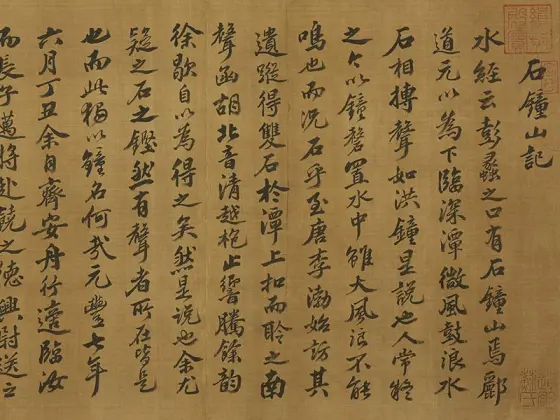 石鐘山記
水經云彭蠡之口有石鐘山焉酈
道元以為下臨深潭微風鼓浪水
石相搏聲如洪鐘是說也人常疑
之今以鐘磬置水中雖大風浪不能
鳴也而況石乎至唐李渤始訪其
遺蹤得雙石於潭上扣而聆之南
聲函胡北音清越枹止響騰餘韻
徐歇自以為得之矣然是說也余尤
疑之石之鏗然有聲者所在皆是
也而此獨以鐘名何哉元豐七年
六月丁丑余自齊安舟行適臨汝
而長子邁將赴饒之德興尉送之